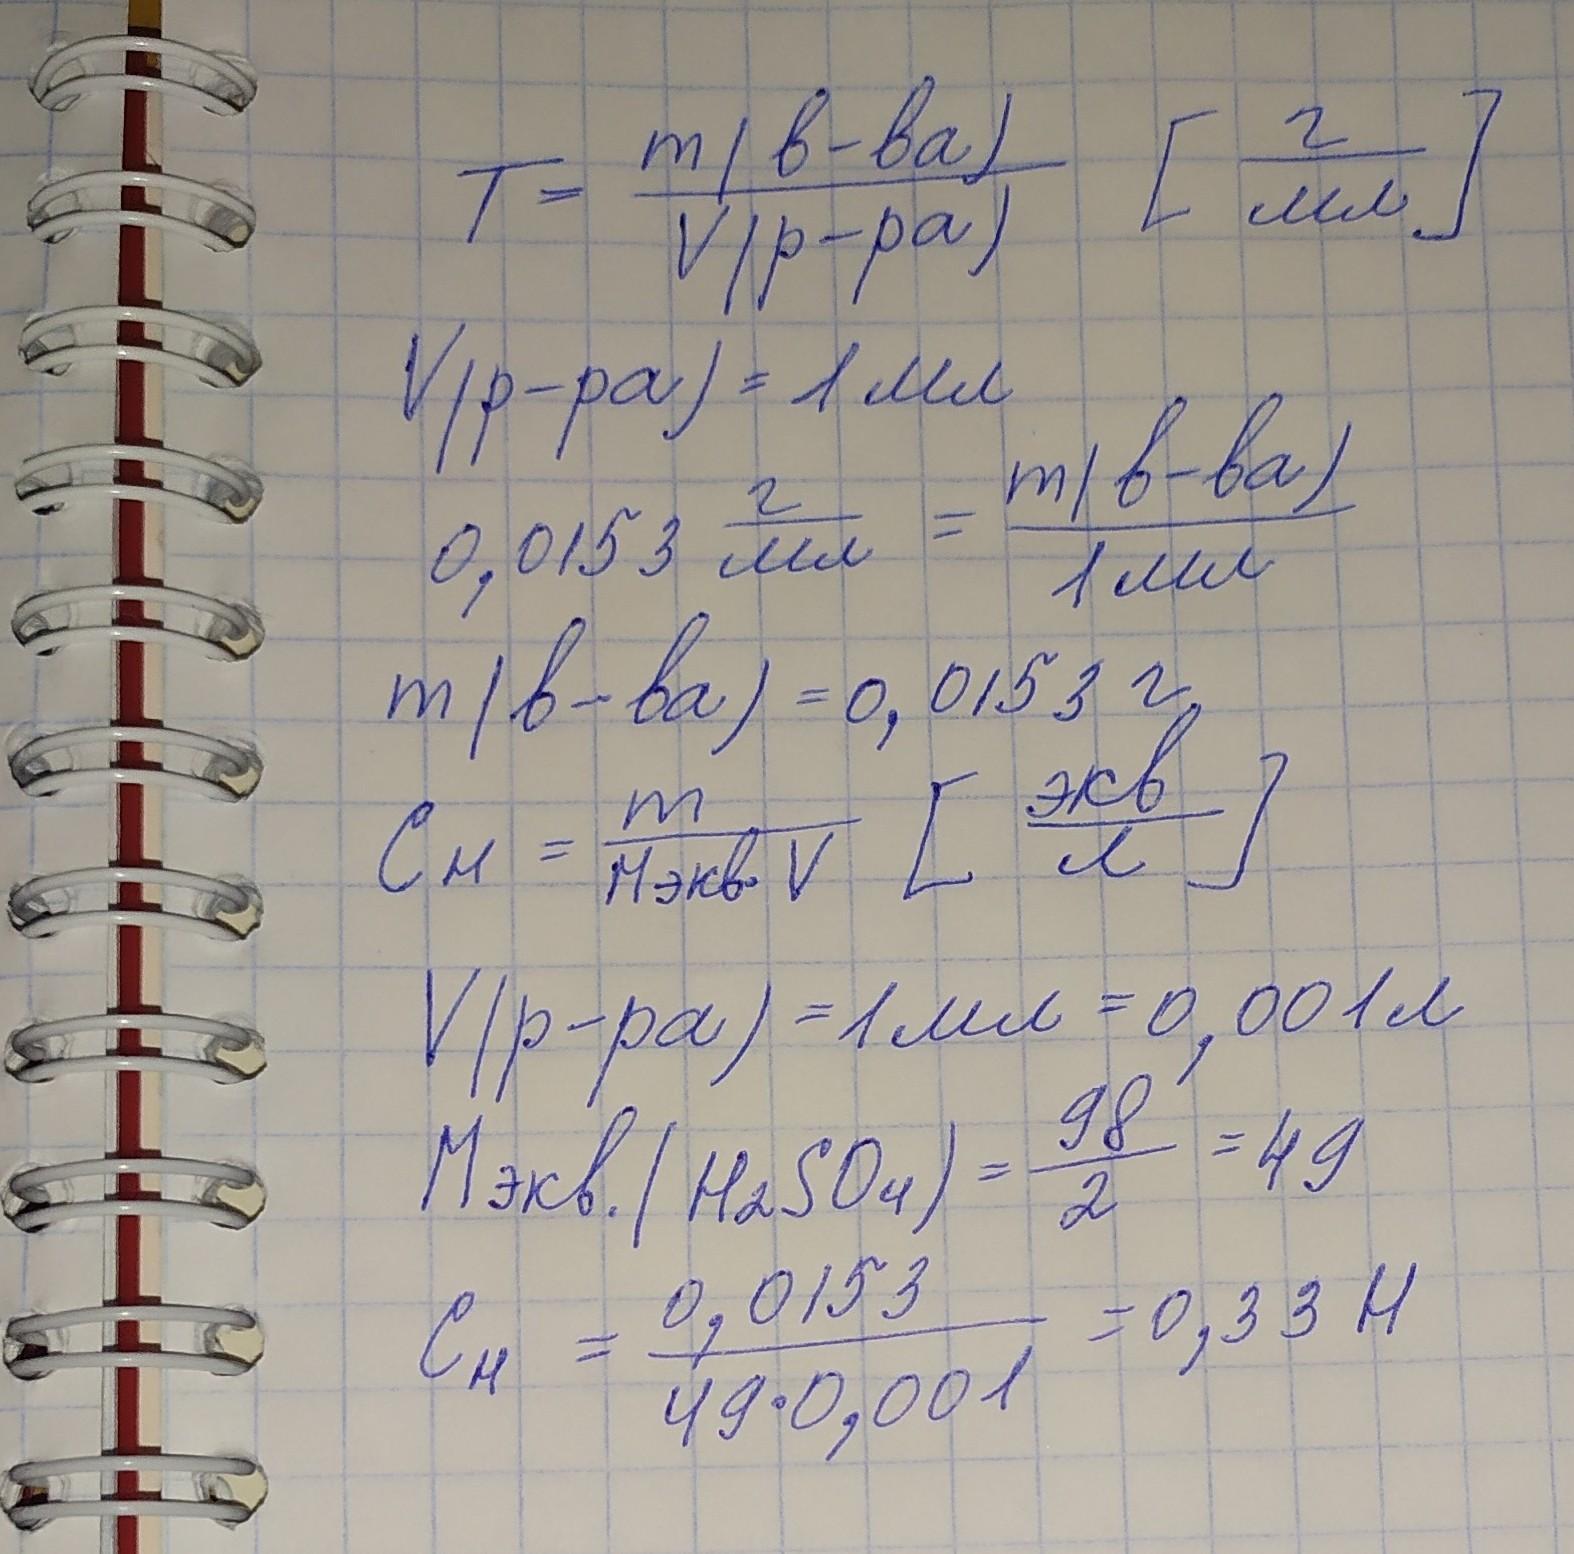 T = m(в-ва) / V(р-ра) [г/мл]
V(р-ра) = 1 мл
0,0153 г/мл = m(в-ва) / 1 мл
m(в-ва) = 0,0153 г
Cн = m / Mэкв·V [экв/л]
V(р-ра) = 1 мл = 0,001 л
Mэкв.(H₂SO₄) = 98/2 = 49
Cн = 0,0153 / 49·0,001 = 0,33 Н